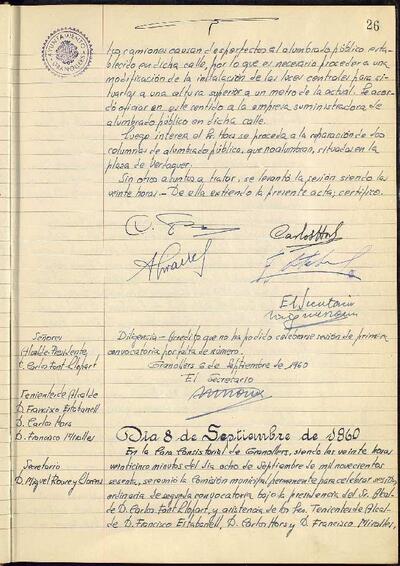 26
AYUNTAMIENTO
GRANOLLERS
los camiones causan desperfectos al alumbrado público esta-
blecido en dicha calle, por lo que es necesario proceder a una
modificación de la instalación de las luces centrales para si-
tuarlas a una altura superior a un metro de la actual. Se acor-
dó oficiar en este sentido a la empresa suministradora de
alumbrado público en dicha calle.
Luego interesa el Sr. Hors se proceda a la reparación de dos
columnas de alumbrado público, que no alumbran, situadas en la
plaza de Verdaguer.
Sin otros asuntos a tratar, se levantó la sesión siendo las
veinte horas.- De ella extiendo la presente acta; certifico.
Carlos Hors
El Secretario
Diligencia.- Acredito que no ha podido celebrarse sesión de primera
convocatoria por falta de número.
Granollers 6 de Septiembre de 1960
El Secretario
Señores
Alcalde-Presidente,
C. Carlos Font Llopart
Tenientes de Alcalde
D. Francisco Estabanell
D. Carlos Hors
D. Francisco Miralles
Secretario
D. Miguel Roure y Llorens
Día 8 de Septiembre de 1960
En la Casa Consistorial de Granollers, siendo las veinte horas
veinticinco minutos del día ocho de Septiembre de mil novecientos
sesenta, se reunió la Comisión municipal permanente para celebrar sesión
ordinaria de segunda convocatoria bajo la presidencia del Sr. Alcal-
de D. Carlos Font Llopart, y asistencia de los Sres. Tenientes de Alcal-
de D. Francisco Estabanell, D. Carlos Hors y D. Francisco Miralles,